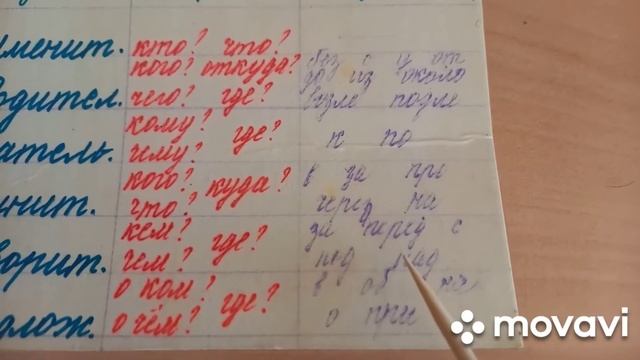 именит. кто? что?
кого? откуда? без с у от
до из около
родител. чего? где? возле подле
кому?
атель. чему? где? к по
кого? куда? в за про
нит. что? через на
кем? за перед с
ворит. чем? где? под над
о ком? в об на
длож. о чём? где? о при
movavi